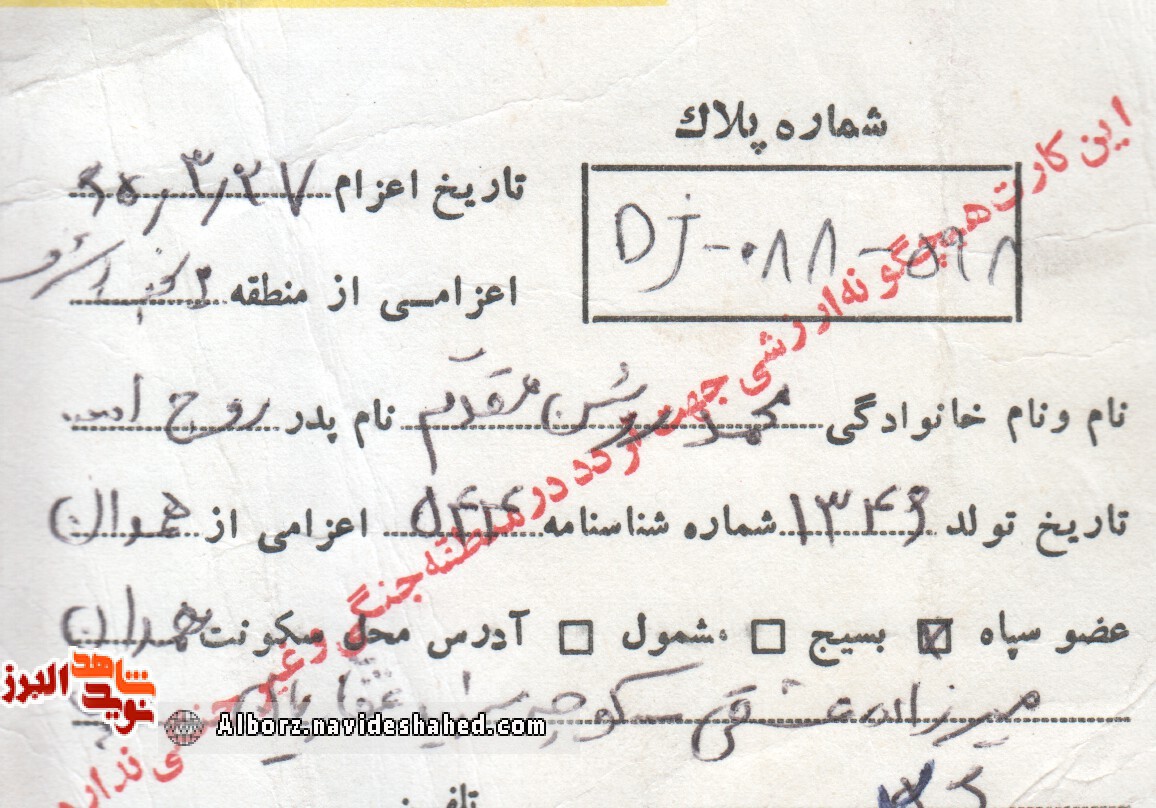 شماره پلاك
DJ-۰۸۸-۵۹۸
تاریخ اعزام ۶۵٫۳٫۲۷
اعزامی از منطقه
نام ونام خانوادگی محمد روشن مقدم نام پدر روح الله
تاریخ تولد ۱۳۴۶ شماره شناسنامه اعزامی از همدان
عضو سپاه بسیج مشمول آدرس محل سکونت همدان
میرزاده عشقی کوچه
تلفن
این کارت هیچگونه ارزشی جهت تردد در منطقه جنگی وغیر جنگی ندارد
نوید شاهد البرز
Alborz.navideshahed.com